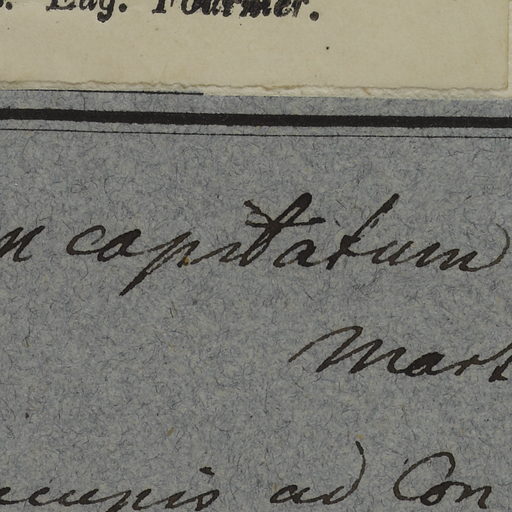 Eug. Fournier.
n capitatum
Mart
ad Con